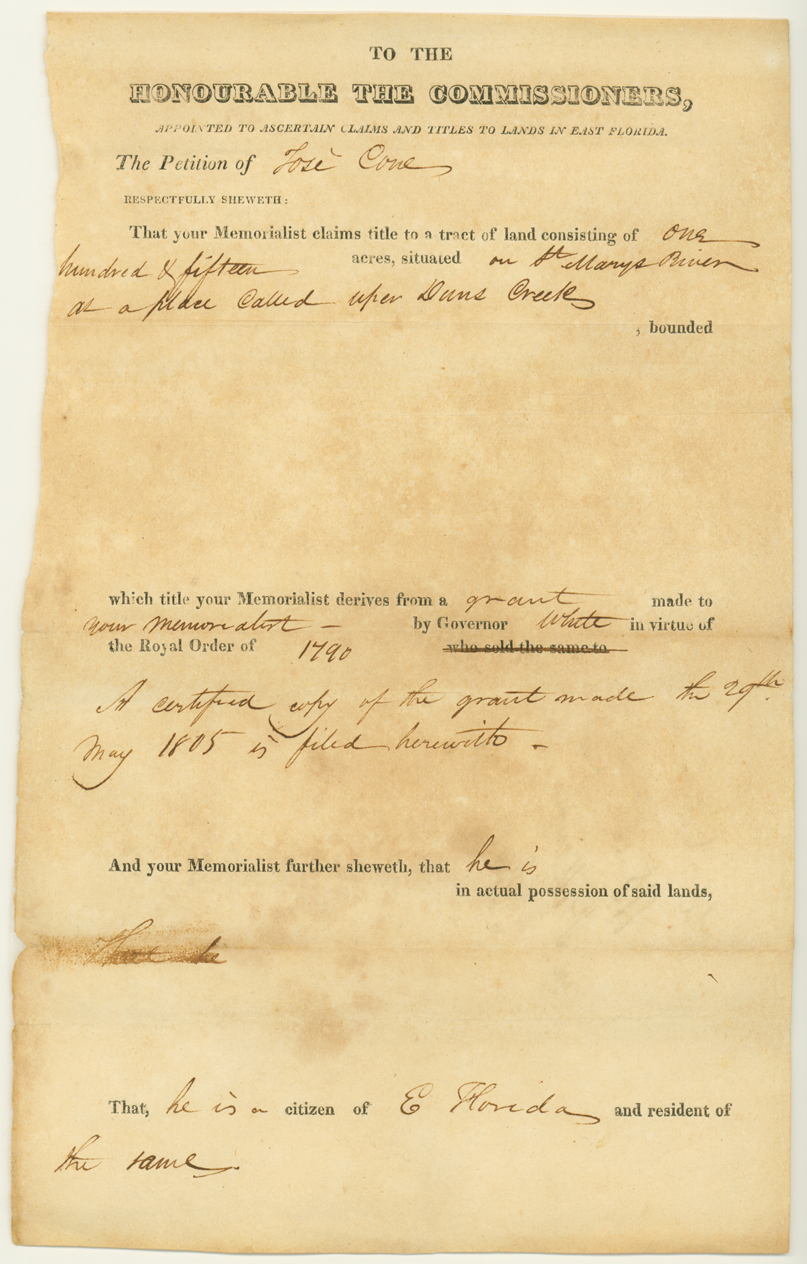 TO THE
HONOURABLE THE COMMISSIONERS,
APPOINTED TO ASCERTAIN CLAIMS AND TITLES TO LANDS IN EAST FLORIDA.
The Petition of José Cone
RESPECTFULLY SHEWETH:
That your Memorialist claims title to a tract of land consisting of one
hundred & fifteen acres, situated on St Marys River
at a place Called uper Duns Creek
, bounded
which title your Memorialist derives from a grant made to
your memorialist - by Governor White in virtue of
the Royal Order of 1790 who sold the same to
A certified copy of the grant made the 29th
May 1805 is filed herewith -
And your Memorialist further sheweth, that he is
in actual possession of said lands,
That he
That, he is a citizen of E Florida and resident of
the same.